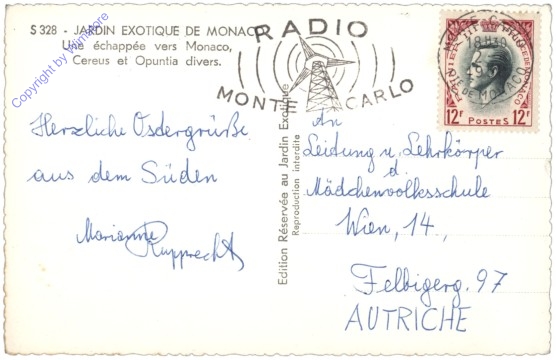 S 328 - JARDIN EXOTIQUE DE MONACO
Une échappée vers Monaco,
Cereus et Opuntia divers.
Copyright by Wimstore
RADIO
MONTE CARLO
18H30
DE MONACO
12F POSTES 12F
Herzliche Ostergrüße
aus dem Süden
Marianne
Rupprecht
Edition Réservée au Jardin Exotique
Reproduction interdite
An
Leitung u. Lehrkörper
d.
Mädchenvolksschule
Wien, 14.,
Felbigerg. 97
AUTRICHE